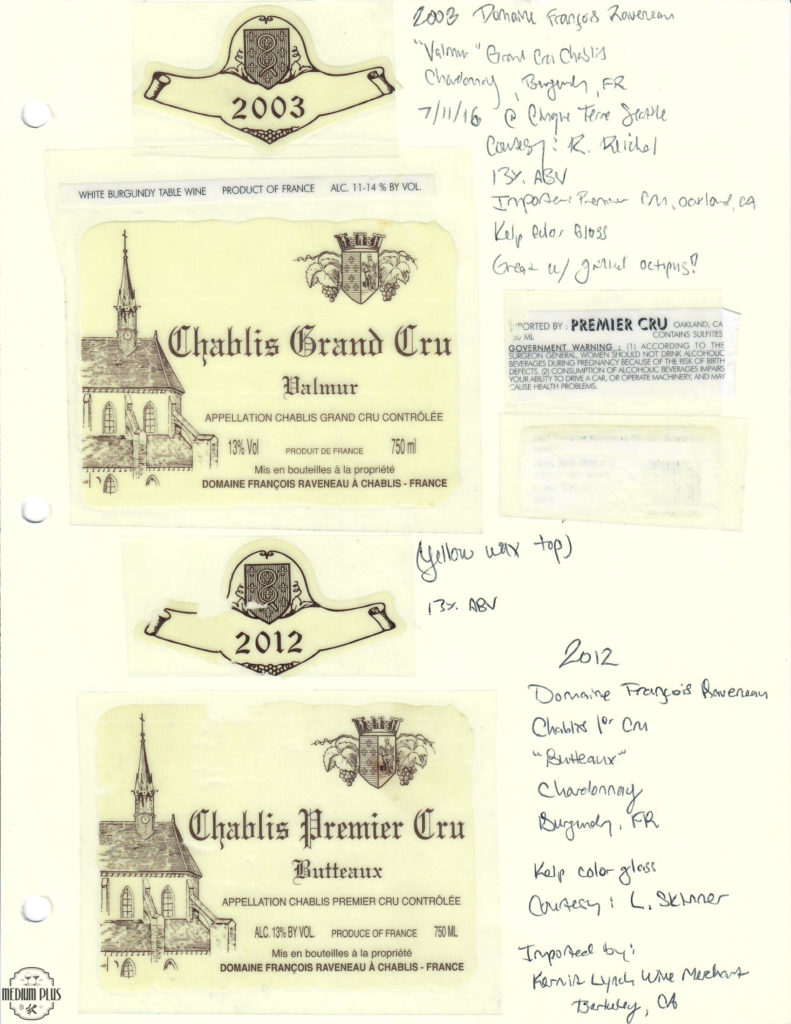 2003 Domaine François Raveneau
"Valmur" Grand Cru Chablis
Chardonnay, Burgundy, FR
7/11/16 @ Cinque Terre Seattle
Courtesy: R. Reichel
13% ABV
Importer: Premier Cru, Oakland, CA
Kelp color gloss
Great w/ grilled octopus!
2003
WHITE BURGUNDY TABLE WINE PRODUCT OF FRANCE ALC. 11-14 % BY VOL.
Chablis Grand Cru
Valmur
APPELLATION CHABLIS GRAND CRU CONTRÔLÉE
13% Vol PRODUIT DE FRANCE 750 ml
Mis en bouteilles à la propriété
DOMAINE FRANÇOIS RAVENEAU À CHABLIS - FRANCE
PORTED BY : PREMIER CRU OAKLAND, CA
50 ML CONTAINS SULFITES
GOVERNMENT WARNING : (1) ACCORDING TO THE
SURGEON GENERAL, WOMEN SHOULD NOT DRINK ALCOHOLIC
BEVERAGES DURING PREGNANCY BECAUSE OF THE RISK OF BIRTH
DEFECTS. (2) CONSUMPTION OF ALCOHOLIC BEVERAGES IMPAIRS
YOUR ABILITY TO DRIVE A CAR, OR OPERATE MACHINERY, AND MAY
CAUSE HEALTH PROBLEMS.
(Yellow wax top)
13% ABV
2012
2012
Domaine François Raveneau
Chablis 1er Cru
"Butteaux"
Chardonnay
Burgundy, FR
Kelp color gloss
Courtesy: L. Skinner
Imported by:
Kermit Lynch Wine Merchant
Berkeley, CA
Chablis Premier Cru
Butteaux
APPELLATION CHABLIS PREMIER CRU CONTRÔLÉE
ALC. 13% BY VOL. PRODUCE OF FRANCE 750 ML
Mis en bouteilles à la propriété
DOMAINE FRANÇOIS RAVENEAU À CHABLIS - FRANCE
MEDIUM PLUS